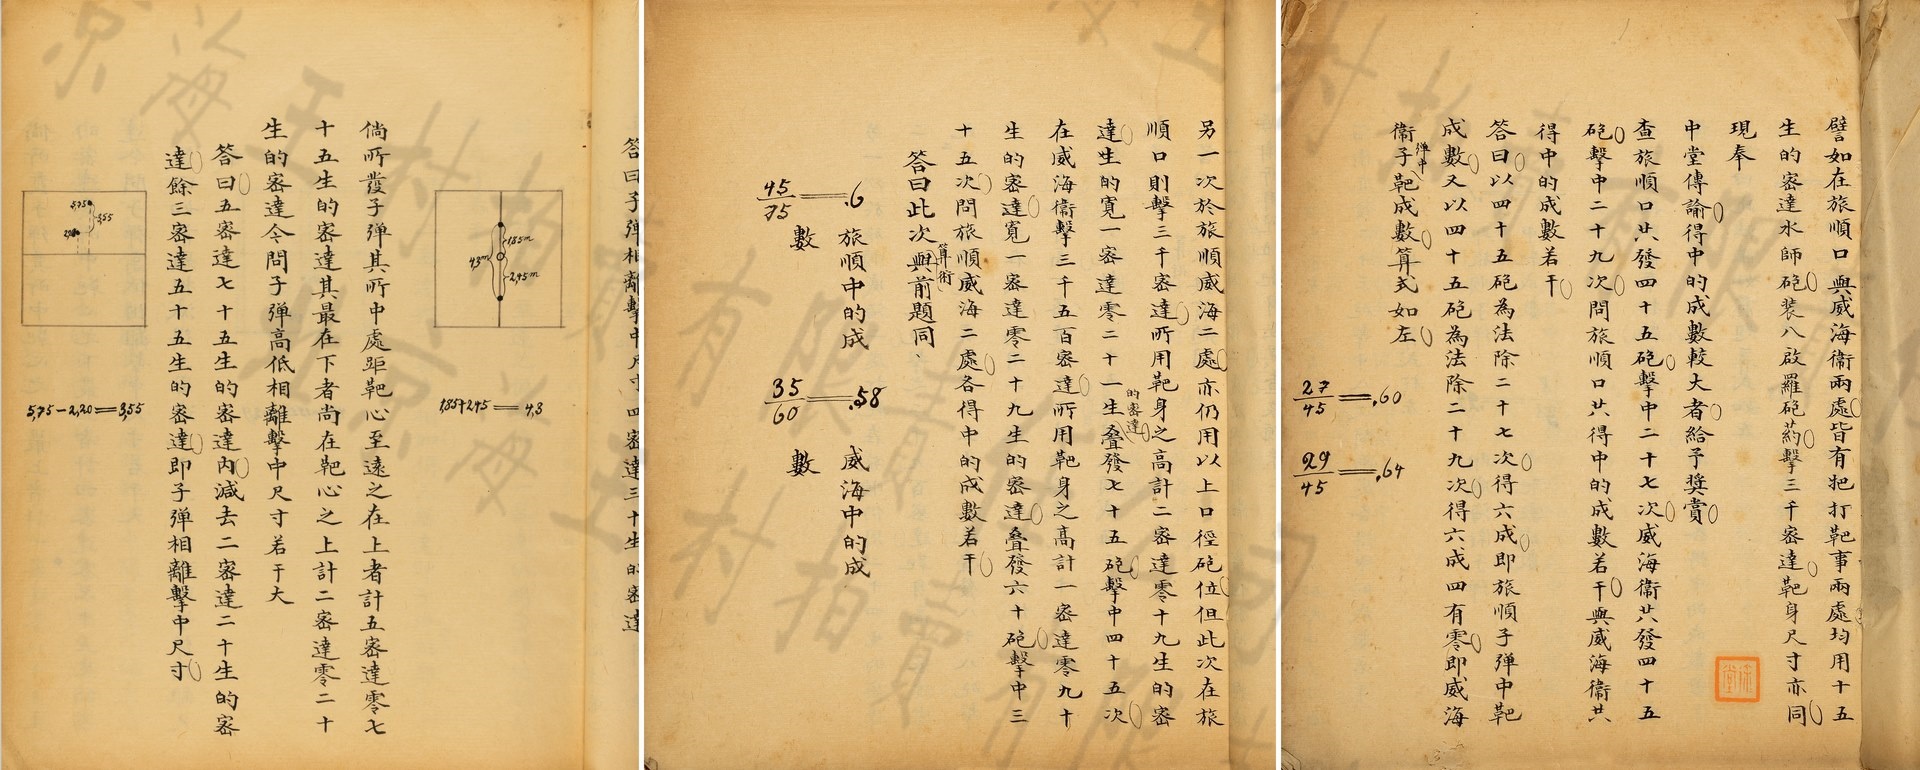 譬如在旅順口與威海衞兩處皆有把打靶事兩處均用十五
生的密達水師砲裝八啟羅砲葯擊三千密達靶身尺寸亦同
現奉
中堂傳諭得中的成數較大者給予奬賞
查旅順口共發四十五砲擊中二十七次威海衞共發四十五
砲擊中二十九次問旅順口共得中的成數若干與威海衞共
得中的成數若干
答曰以四十五砲為法除二十七次得六成即旅順子弹中靶
成數又以四十五砲為法除二十九次得六成四有零即威海
衞子弹中靶成數算式如左
27/45=.60
29/45=.64
另一次於旅順威海二處亦仍用以上口徑砲位但此次在旅
順口則擊三千密達所用靶身之高計二密達零十九生的密
達生的寬一密達零二十一生的密達叠發七十五砲擊中四十五次
在威海衞擊三千五百密達所用靶身之高計一密達零九十
生的密達寬一密達零二十九生的密達叠發六十砲擊中三
十五次問旅順威海二處各得中的成數若干
答曰此次算術與前題同
45/75=.6
旅順中的成
數
35/60=.58
威海中的成
數
答曰子弹相離擊中尺寸四密達三十生的密達
1,85m
4,3m
2,45m
1,85+2,45=4,3
倘所發子弹其所中處距靶心至遠之在上者計五密達零七
十五生的密達其最在下者尚在靶心之上計二密達零二十
生的密達今問子弹高低相離擊中尺寸若干大
答曰五密達七十五生的密達內減去二密達二十生的密
達餘三密達五十五生的密達即子弹相離擊中尺寸
5,75
3,55
5,75-2,20=3,55